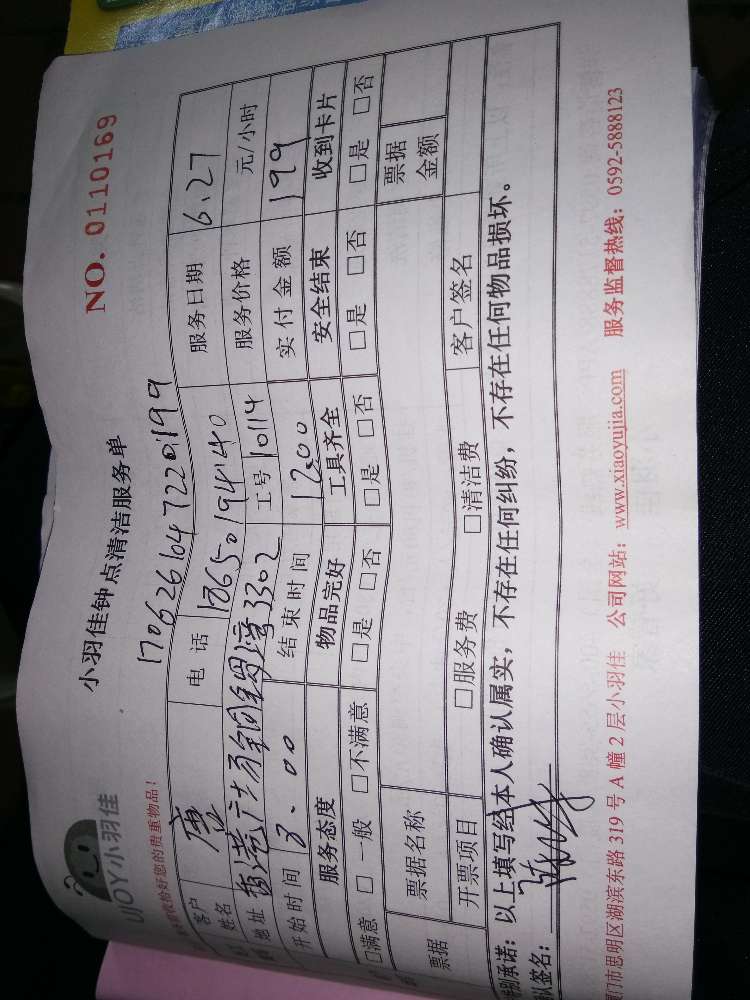 UJOY小羽佳
小羽佳钟点清洁服务单
NO. 0110169
收拾好您的贵重物品!
客户姓名 唐 电话 18650194140 服务日期 6.27
地址 香港广场铜锣湾3302 工号 10114 服务价格 元/小时
开始时间 3.00 结束时间 12.00 实付金额 199
服务态度 物品完好 工具齐全 安全结束 收到卡片
□满意 □一般 □不满意 □是 □否 □是 □否 □是 □否 □是 □否
票据 票据名称 票据金额
开票项目 □服务费 □清洁费 客户签名
特别承诺:以上填写经本人确认属实,不存在任何纠纷,不存在任何物品损坏。
认签名:
厦门市思明区湖滨东路319号A幢2层小羽佳 公司网站:www.xiaoyujia.com 服务监督热线:0592-5888123